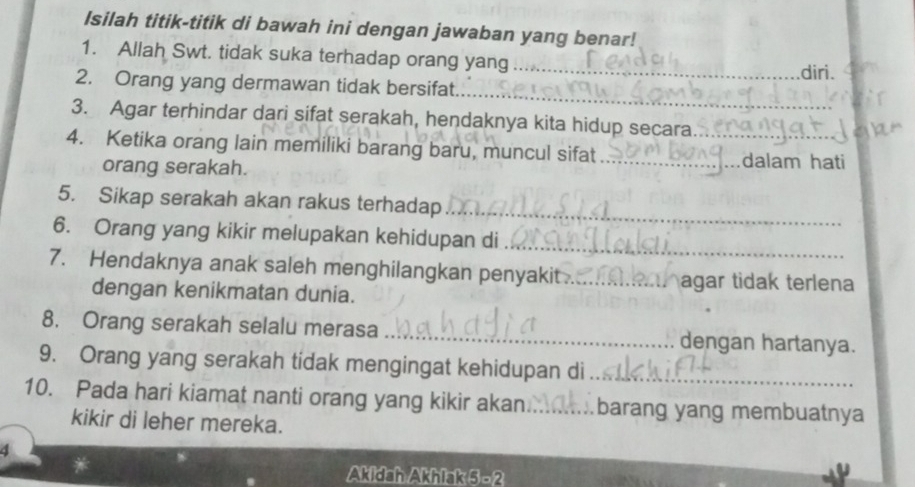 Isilah titik-titik di bawah ini dengan jawaban yang benar!
1. Allah Swt. tidak suka terhadap orang yang ... Rendah ... diri.
2. Orang yang dermawan tidak bersifat... sombong dan kikir
3. Agar terhindar dari sifat serakah, hendaknya kita hidup secara...
4. Ketika orang lain memiliki barang baru, muncul sifat ... Sombong ... dalam hati
orang serakah.
5. Sikap serakah akan rakus terhadap ... manusia
6. Orang yang kikir melupakan kehidupan di ...
7. Hendaknya anak saleh menghilangkan penyakit... agar tidak terlena
dengan kenikmatan dunia.
8. Orang serakah selalu merasa ... bahagia ... dengan hartanya.
9. Orang yang serakah tidak mengingat kehidupan di ...
10. Pada hari kiamat nanti orang yang kikir akan... barang yang membuatnya
kikir di leher mereka.
4
Akidah Akhlak 5 - 2